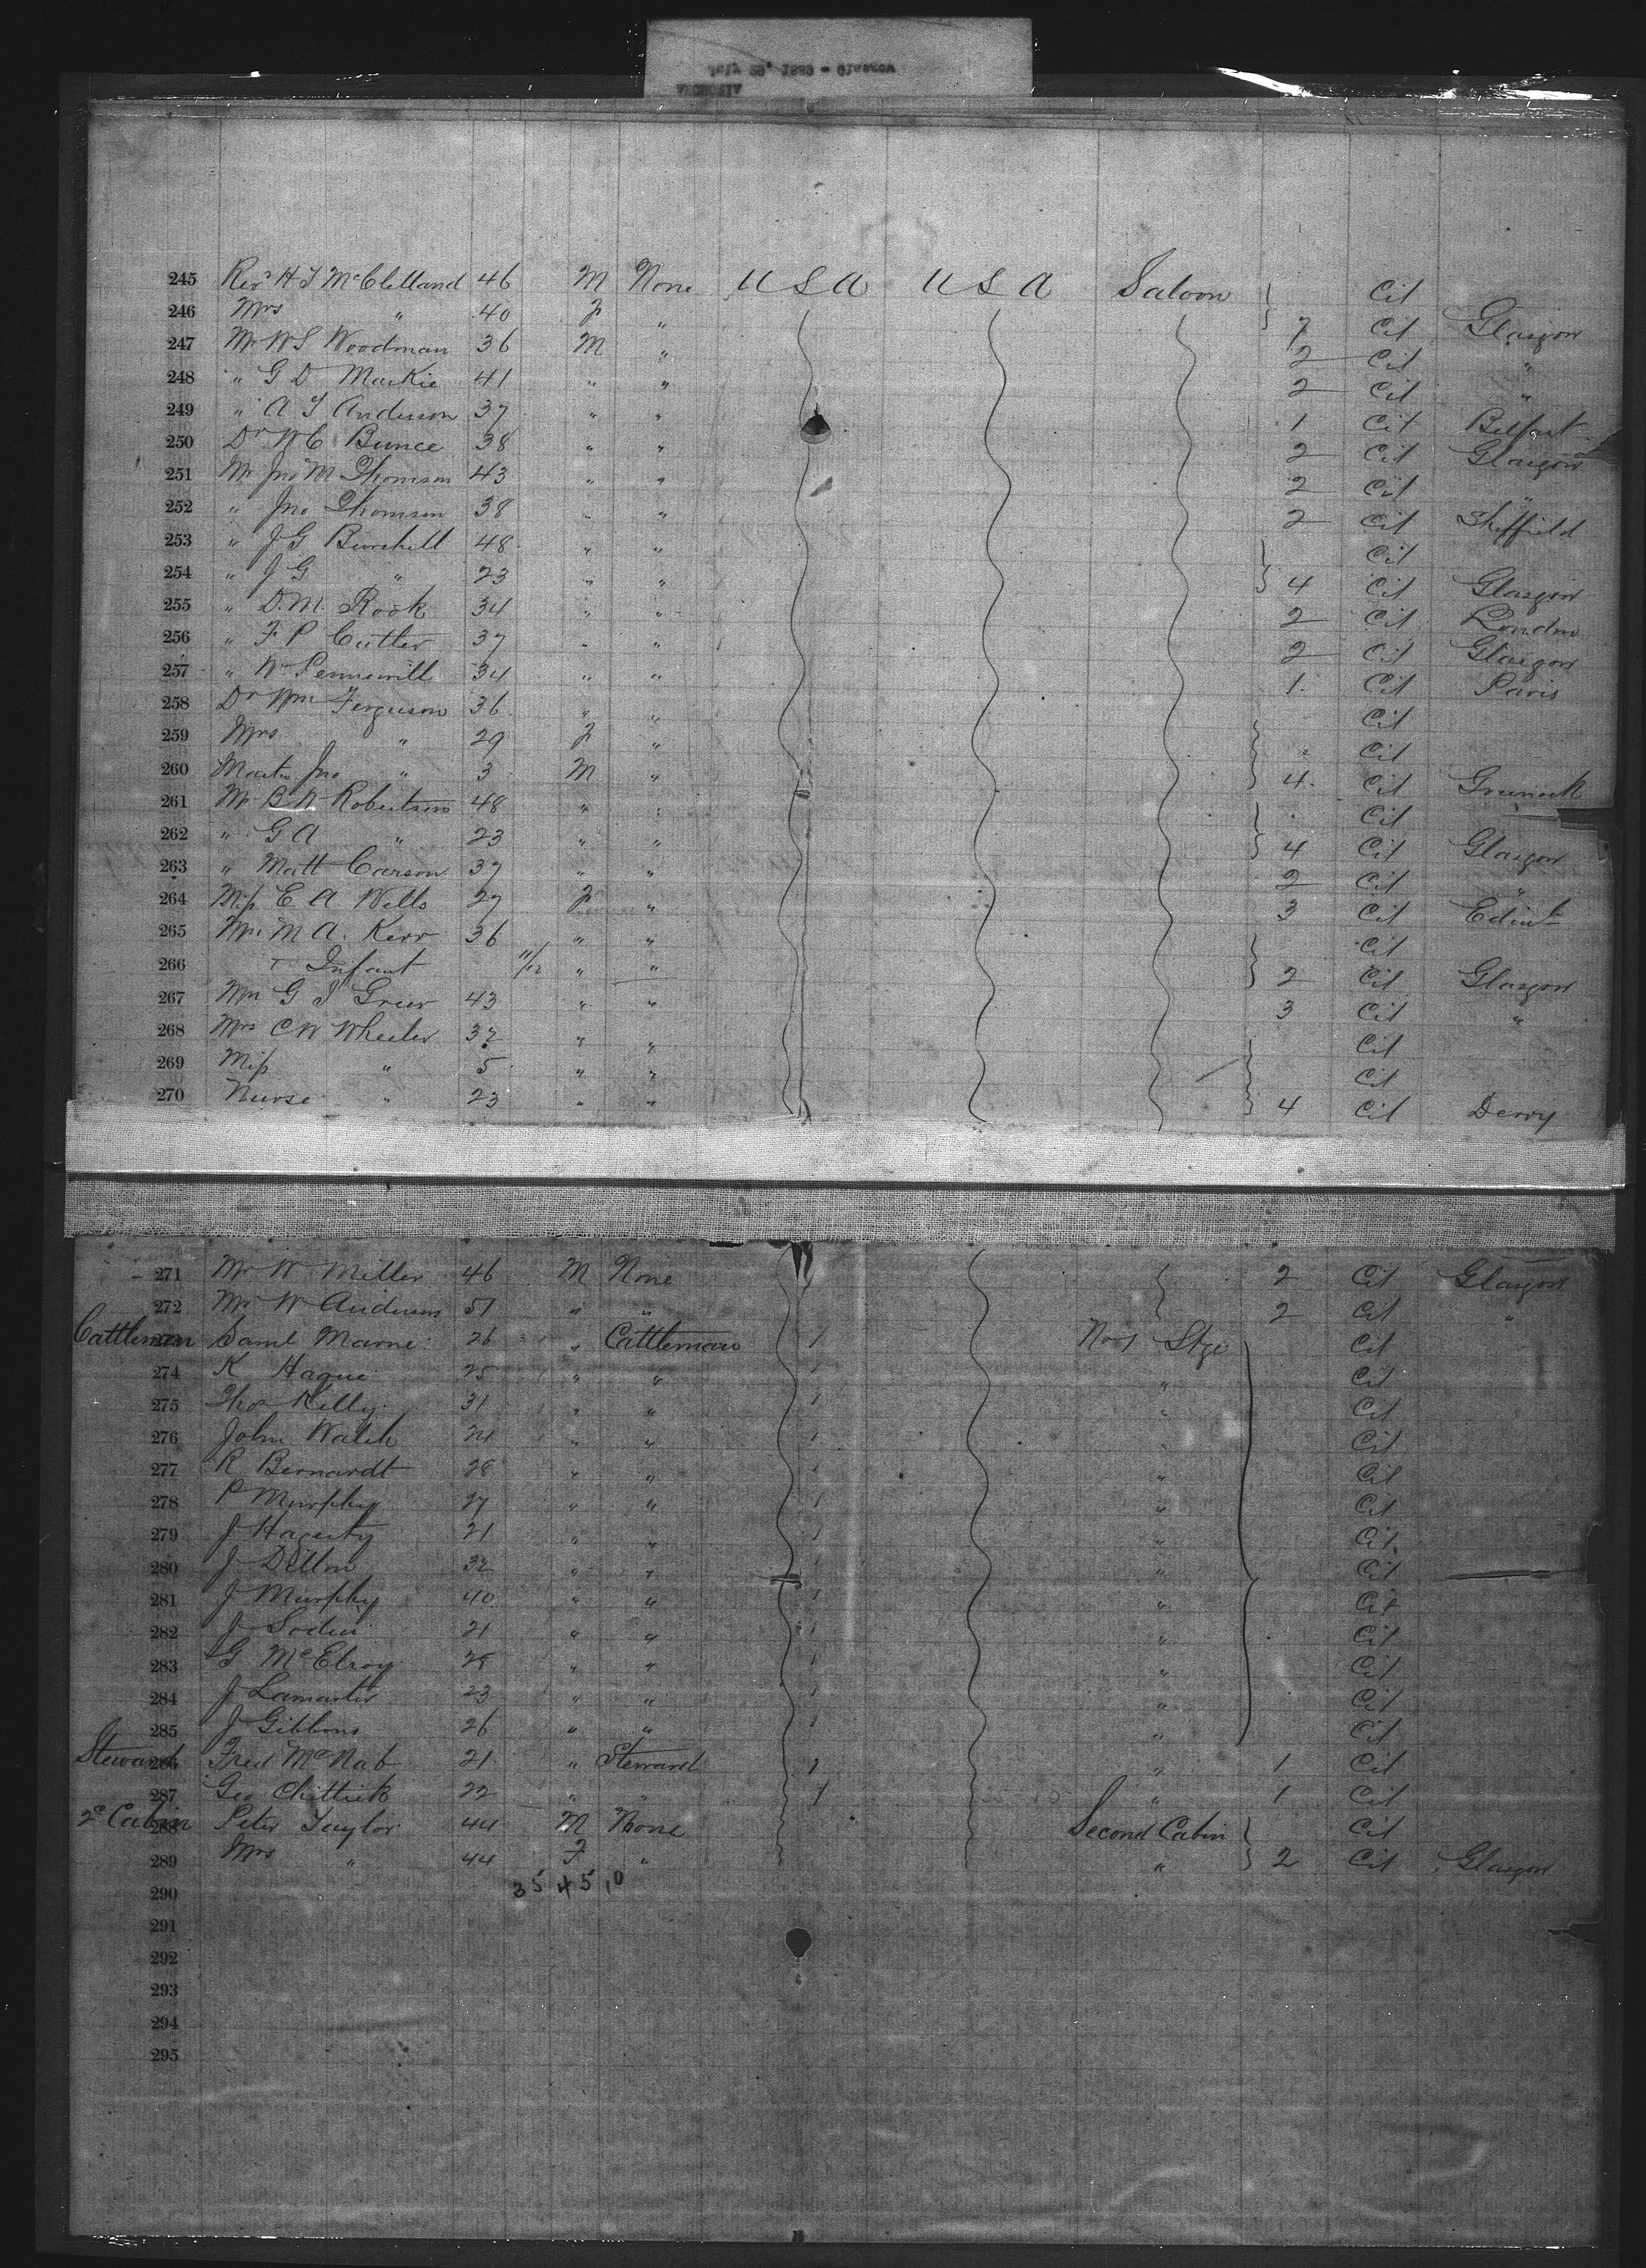 July 29, 1889 - Glasgow
ANCHORIA
245 Revd H T McClelland 46 M None U S A U S A Saloon Cit
246 Mrs " 40 F " 7 Cit Glasgow
247 Mr W S Woodman 36 M " 2 Cit "
248 " G D Mackie 41 " " 2 Cit "
249 " A T Anderson 37 " " 1 Cit Belfast
250 Dr W C Bunce 38 " " 2 Cit Glasgow
251 Mr Jno M Thomson 43 " " 2 Cit "
252 " Jno Thomson 38 " " 2 Cit Sheffield
253 " J G Burchell 48 " " Cit
254 " J G " 23 " " 4 Cit Glasgow
255 " D. M. Rook 34 " " 2 Cit London
256 " F P Cutler 37 " " 2 Cit Glasgow
257 " W Pennewill 34 " " 1 Cit Paris
258 Dr Wm Ferguson 36 " " Cit
259 Mrs " 29 F " Cit
260 Master Jno " 3 M " 4 Cit Greenock
261 Mr B W Robertson 48 " " Cit
262 " G A " 23 " " 4 Cit Glasgow
263 " Matt Carson 37 " " 2 Cit "
264 Miss E A Wells 27 F " 3 Cit Edinb
265 Mrs M A. Kerr 36 " " Cit
266 " Infant 11/12 " " 2 Cit Glasgow
267 Mrs G I Greer 43 " " 3 Cit "
268 Mrs C W Wheeler 32 " " Cit
269 Miss " 5 " " Cit
270 Nurse " 23 " " 4 Cit Derry
271 Mr W Miller 46 M None 2 Cit Glasgow
272 Mr W Anderson 51 " " 2 Cit "
Cattlemen Saml Marne 26 " Cattleman 1 No 1 Stge Cit
274 K Hague 25 " " 1 " Cit
275 Thos Kelly 31 " " 1 " Cit
276 John Walsh 24 " " 1 " Cit
277 R Bernardt 28 " " 1 " Cit
278 P Murphy 27 " " 1 " Cit
279 J Hagerty 21 " " 1 " Cit
280 J Dillon 32 " " 1 " Cit
281 J Murphy 40 " " 1 " Cit
282 J Soden 21 " " 1 " Cit
283 G McElroy " " 1 " Cit
284 J Lamarter 23 " " 1 " Cit
285 J Gibbons 26 " " 1 " Cit
Steward 286 Fred McNab 21 " Steward 1 " 1 Cit
287 Geo Chittick 22 " " 1 " 1 Cit
2d Cabin 288 Peter Taylor 44 M None Second Cabin Cit
289 Mrs " 44 F " " 2 Cit Glasgow
290 35 45 10
291
292
293
294
295